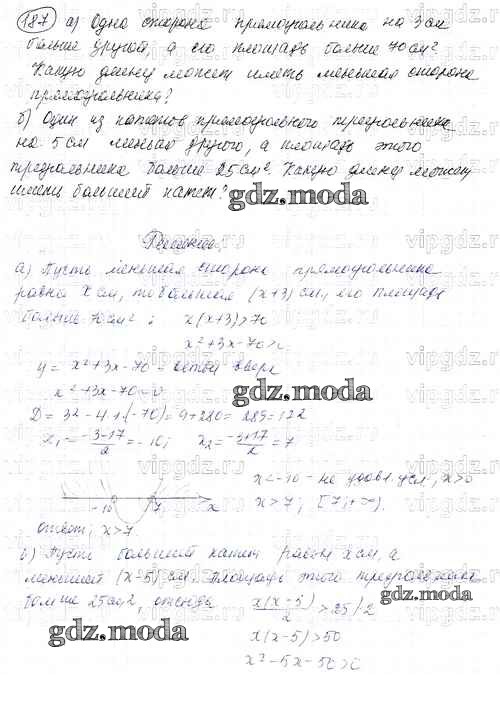 187 а) Одна сторона прямоугольника на 3 см
больше другой, а его площадь больше 70 см²
Какую длину может иметь меньшая сторона
прямоугольника?
б) Один из катетов прямоугольного треугольника
на 5 см меньше другого, а площадь этого
треугольника больше 25 см². Какую длину может
иметь больший катет?
gdz.moda
Решение.
а) Пусть меньшая сторона прямоугольника
равна x см, то большая (x+3) см, его площадь
больше 70 см² : x(x+3)>70
x²+3x-70>0
y = x²+3x-70 - ветви вверх
x²+3x-70=0
gdz.moda
D = 3²-4·1·(-70)=9+280=289=17²
x₁=(-3-17)/2=-10; x₂=(-3+17)/2=7
x<-10 - не удовл. усл., x>0
-10 7 x
x>7; [7;+∞).
ответ: x>7
б) Пусть больший катет равен x см, а
меньший (x-5) см. Площадь этого треугольника
больше 25 см², отсюда x(x-5)/2 >25 /2
gdz.moda
gdz.moda
x(x-5)>50
x²-5x-50>0
vipgdz.ru